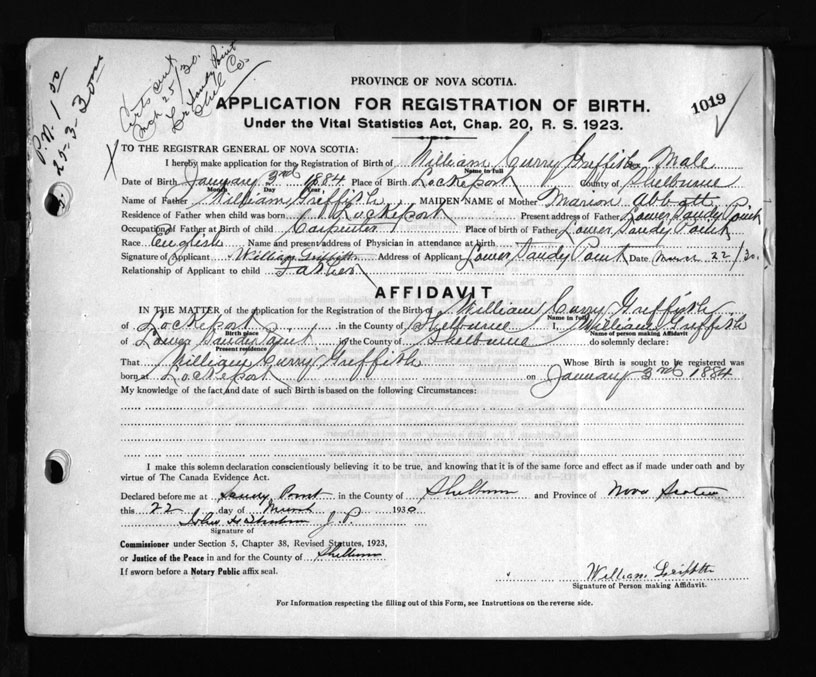 P.N. 1 00
25-3-30
Certs sent
Mch 25/30.
Sandy Point
Shel Co.
PROVINCE OF NOVA SCOTIA.
APPLICATION FOR REGISTRATION OF BIRTH.
1019
Under the Vital Statistics Act, Chap. 20, R. S. 1923.
TO THE REGISTRAR GENERAL OF NOVA SCOTIA:
I hereby make application for the Registration of Birth of William Curry Greffith Male
Name in full
Date of Birth January 3rd 1884 Place of Birth Lockeport County of Shelburne
Month Day Year
Name of Father William Greffith MAIDEN NAME of Mother Marion Abbott
Residence of Father when child was born Lockeport Present address of Father Lower Sandy Point
Occupation of Father at Birth of child Carpenter Place of birth of Father Lower Sandy Point
Race English Name and present address of Physician in attendance at birth
Signature of Applicant William Griffith Address of Applicant Lower Sandy Point Date March 22/30.
Relationship of Applicant to child Father
AFFIDAVIT
IN THE MATTER of the application for the Registration of the Birth of William Curry Greffith
Name in full
of Lockeport in the County of Shelburne I, William Greffith
Birth place Name of person making Affidavit
of Lower Sandy Point in the County of Shelburne do solemnly declare:
Present residence
That William Curry Greffith Whose Birth is sought to be registered was
born at Lockeport on January 3rd 1884
My knowledge of the fact and date of such Birth is based on the following Circumstances:
I make this solemn declaration conscientiously believing it to be true, and knowing that it is of the same force and effect as if made under oath and by
virtue of The Canada Evidence Act.
Declared before me at Sandy Point in the County of Shelburne and Province of Nova Scotia
this 22 day of March 1930
John J.P.
Signature of
Commissioner under Section 5, Chapter 38, Revised Statutes, 1923,
or Justice of the Peace in and for the County of Shelburne
If sworn before a Notary Public affix seal.
William Griffith
Signature of Person making Affidavit.
For Information respecting the filling out of this Form, see Instructions on the reverse side.